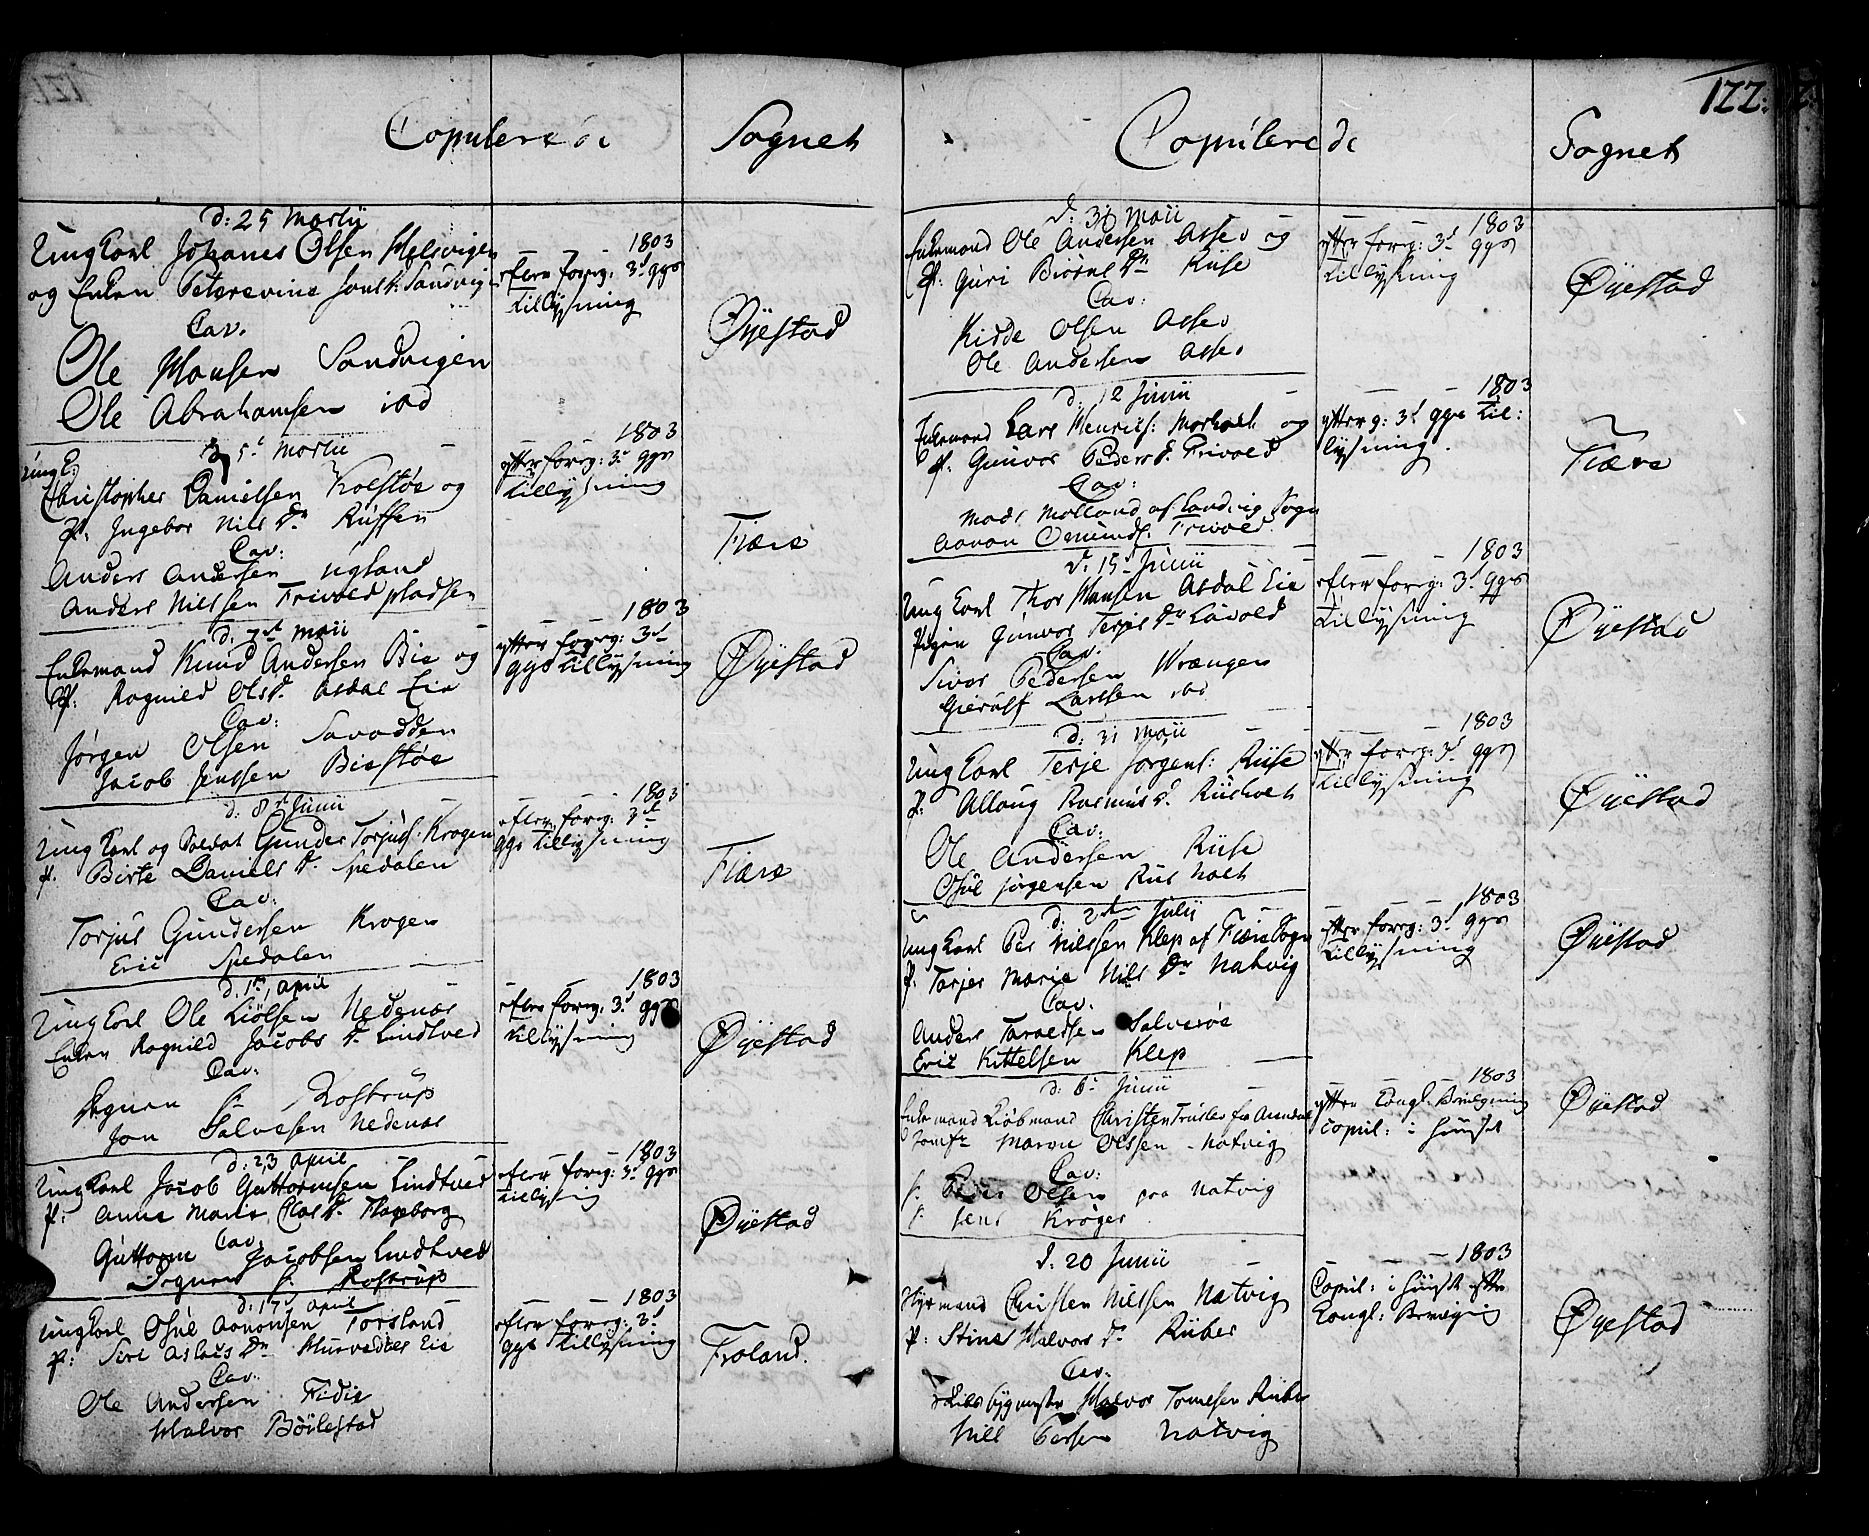 Copulerede
Sognet
d: 25 Martii
Ung Karl Johanes Olsen Helsvigen
og Enken Peterevine Jons D. Sandvigen
Cav.
Ole Hansen Sandvigen
Ole Abrahamsen ibd
1803
efter forrg: 3d ggs
tillysning
Øyestad
5t Martii
Ung K:
Christopher Danielsen Kolstøe og
P. Ingebor Nils Dr Ruffen
Cav:
Anders Andersen Ugland
Anders Nielsen Frivold pladsen
1803
efter forrg: 3d ggs
tillysning
Fiære
d. 7de Maii
Enkemand Knud Andersen Bie og
P: Ragnild Ols D. Asdal Eie
Cav:
Jørgen Olsen Savodden
Jacob Jenssen Biestøe
1803
efter forrg: 3de
ggs tillysning
Øyestad
d. 8d Junii
Ung Karl og Soldat Gunder Torjus: Krogen
P. Birte Daniels D. Spedalen
Cav:
Torjus Gundersen Krogen
Eric Spedalen
1803
efter forrg: 3de
ggs tillysning
Fiære
d. 1ste April
Ung Karl Ole Liølsen Nedenæs
Enken Ragnild Jacobs D. Lindtved
Cav.
S. Rostrup
Jon Salvesen Nedenæs
1803
efter forrg: 3d ggs
tillysning
Øyestad
d: 23 April
Ung Karl Jacob Guttormsen Lindtved
P: Anne Marie Clas D. Flageborg
Cav.
Guttorm Jacobsen Lindtved
S. Rostrup
1803
efter forrg: 3d ggs
tillysnig
Øyestad
d: 17de April
Ung Karl Osul Aanonsen Torsland
P: Siri Aslaus Dr Hurvedtes Eie
Cav:
Ole Andersen Fidie
Halvor Bøilestad
1803
efter forrg: 3d
ggs tillysning
Froland.
122.
Copulerede
Sognet
d: 31 Maii
Enkemand Ole Andersen Assev og
P. Guri Biørns Dr Riise
Cav:
Kidde Olsen Assev
Ole Andersen Assev
1803
efter forrg: 3d ggs
tillysning
Øyestad
d. 12 Junii
Enkemand Lars Henrics: Morholt og
P. Gunvor Peders D. Frivold
Cav:
Mads Molland af Landvig Sogn
Aanon Omunds. Frivold
1803
efter g: 3d ggs til:
lysning.
Fiære
d. 15d Junii
Ung Karl Thor Hansen Asdal Eie
Pigen Gunvor Terjes Dr Løvold
Cav:
Sivor Pedersen Wrængen
Gierulf Larssen ibd
1803
efter forrg: 3d ggs
tillysning
Øyestad
d: 31 Maii
Ung Karl Terje Jørgens: Riise
P. Allaug Rasmus D. Riisholt
Cav:
Ole Andersen Riise
Osul Jørgensen Riis holt
1803
efter forrg: 3d ggs
tillysning
Øyestad
d: 2den Julii
Ung Karl Per Nilssen Klep af Fiære Sogn
P. Torjer Marie Nils Dr Natvig
Cav.
Anders Taraldsen Salverøe
Eric Kittelsen Klep
1803
efter forrg: 3d ggs
tillysning
Øyestad
d. 6d Junii
Enkemand Kiøbmand Christen Truslev fra Arendal
Jomfr Maren Olssen Natvig
Cav:
S. Peder Olsen paa Natvig
S. Jens Krøger
1803
efter Kongl: Bevilgning
copul: i Huuset
Øyestad
d. 20 Junii
Hyrmand Christen Nilssen Natvig
P: Stine Halvors Dr Riiber
Cav.
Skibsbygmester Halvor Tomesen Riiber
Nill Persen Natvig
1803
Copul: i Huuset efter
Kongl: Bevilgnig
Øyestad